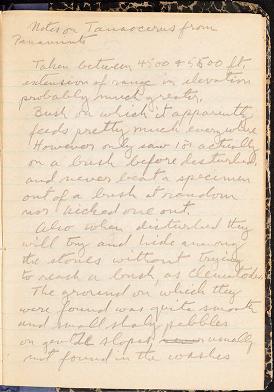 Notes on Tanaocerus from
Panamints
Taken between 4500 & 5500 ft
extension of range in elevation
probably much greater.
Bush on which it apparently
feeds pretty much everywhere
However only saw 1 or actually
on a bush before disturbed,
and never beat a specimen
out of a bush at random
nor kicked one out.
Also when disturbed they
will try and hide among
the stones without trying
to reach a bush, as Clematodes.
The ground on which they
were found was quite smooth
and small shaly pebbles
on gentle slopes, usually
not found in the washes